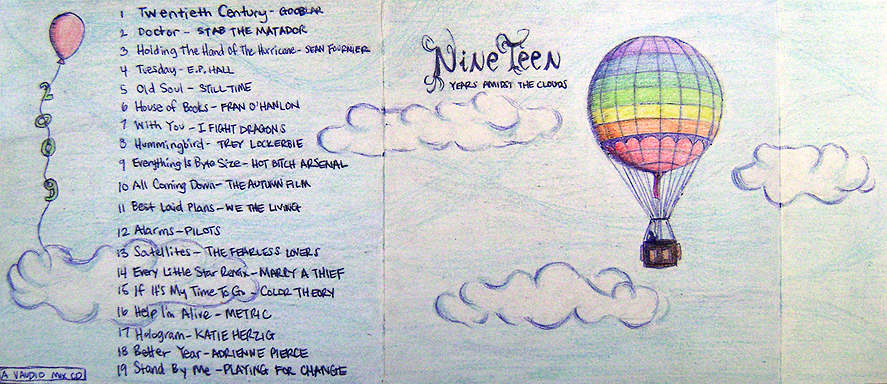 1 Twentieth Century - GOOBLAR
2 Doctor - STAB THE MATADOR
3 Holding the Hand of The Hurricane - SEAN FOURNIER
4 Tuesday - E.P. HALL
5 Old Soul - STILL TIME
6 House of Books - FRAN O'HANLON
7 With You - I FIGHT DRAGONS
8 Hummingbird - TREY LOCKERBIE
9 Everything Is Byte Size - HOT BITCH ARSENAL
10 All Coming Down - THE AUTUMN FILM
11 Best Laid Plans - WE THE LIVING
12 Alarms - PILOTS
13 Satellites - THE FEARLESS LOVERS
14 Every Little Star Remix - MARRY A THIEF
15 If It's My Time To Go - COLOR THEORY
16 Help I'm Alive - METRIC
17 Hologram - KATIE HERZIG
18 Better Year - ADRIENNE PIERCE
19 Stand By Me - PLAYING FOR CHANGE
2009
A VAUDIO MIX CD
NineTeen
YEARS AMIDST THE CLOUDS